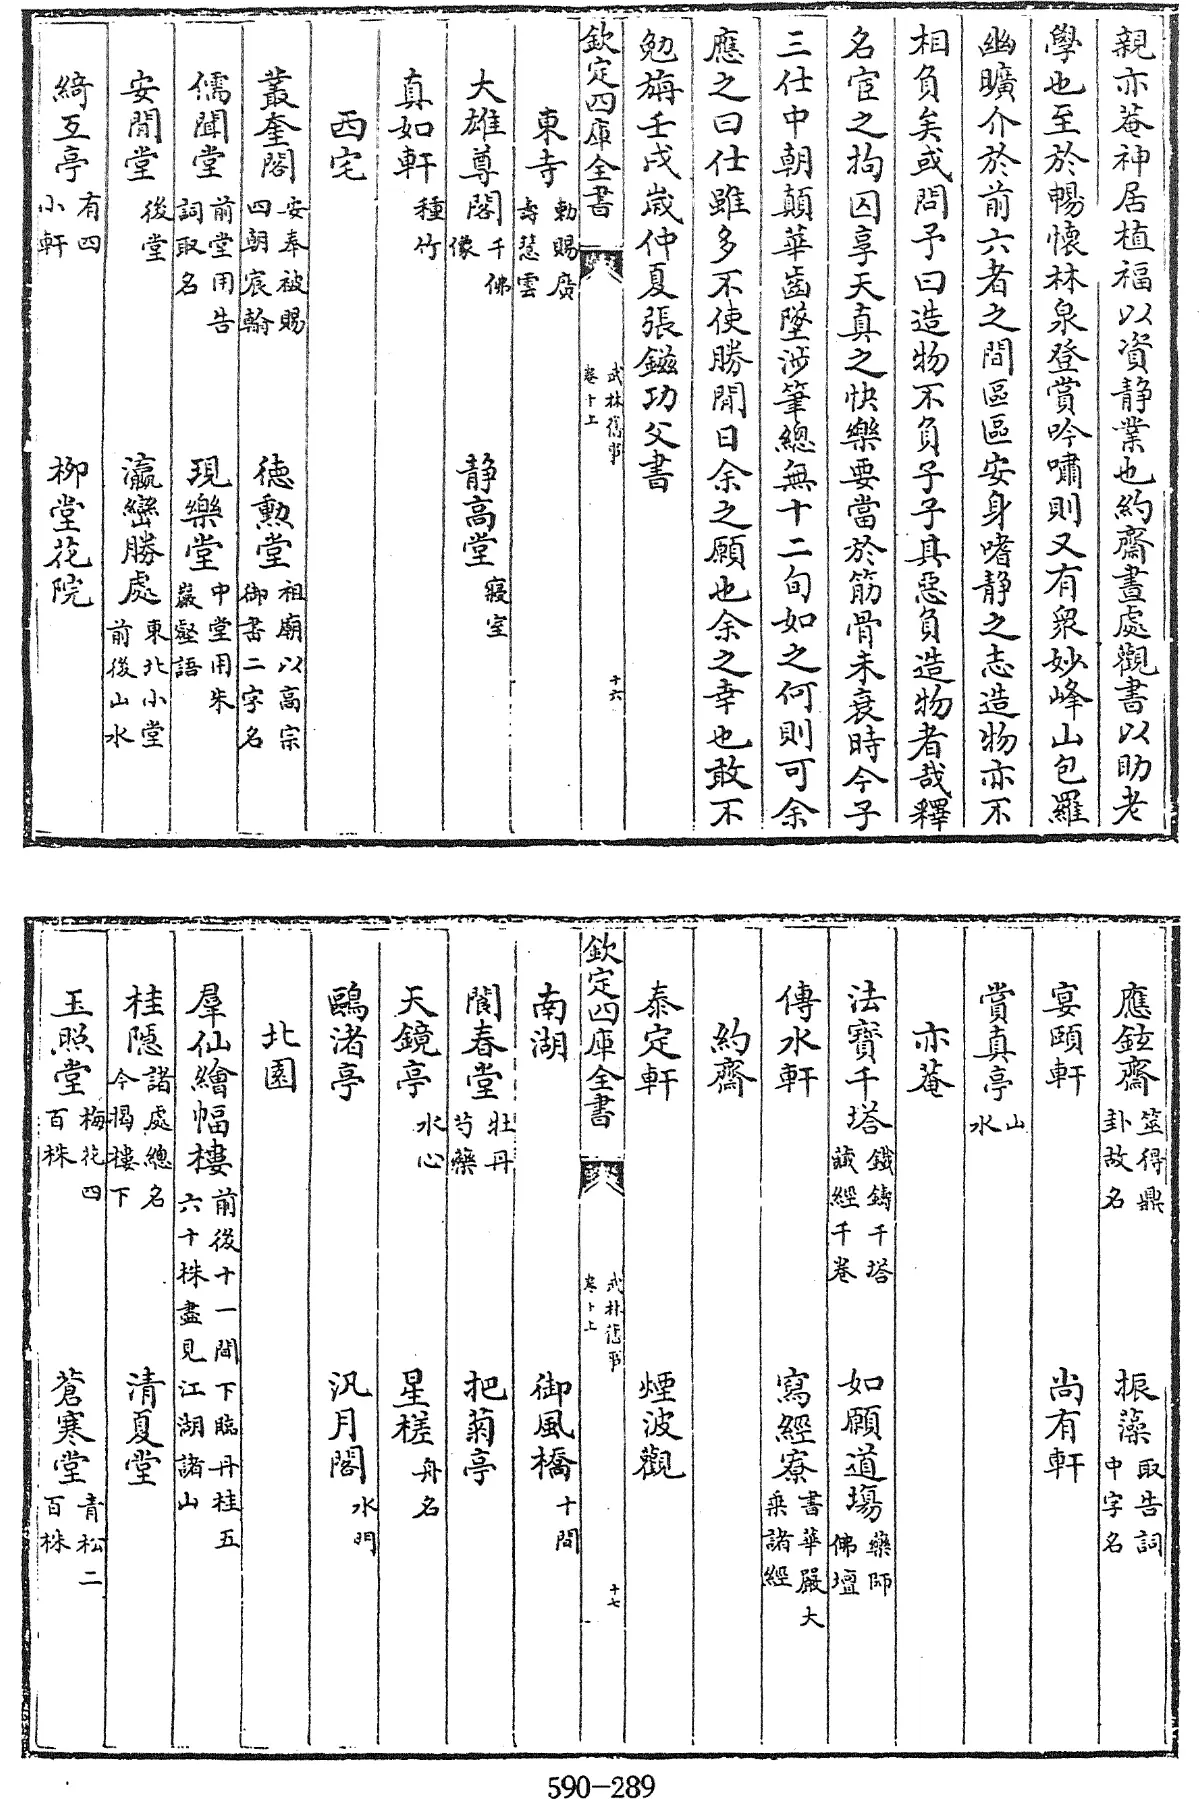 親亦菴神居植福以資静業也約齋晝處觀書以助老
學也至於暢懷林泉登賞吟嘯則又有衆妙峰山包羅
幽曠介於前六者之間區區安身嗜静之志造物亦不
相負矣或問予曰造物不負子子具惡負造物者哉釋
名宦之拘囚享天真之快樂要當於筋骨未衰時今子
三仕中朝顛華齒墜涉筆總無十二旬如之何則可余
應之曰仕雖多不使勝閒日余之願也余之幸也敢不
勉旃壬戌歲仲夏張鎡功父書
欽定四庫全書 武林舊事 卷十上 十六
東寺 勅賜廣壽慧雲
大雄尊閣 千佛像 静高堂 寢室
真如軒 種竹
西宅
叢奎閣 安奉被賜四朝宸翰 德勲堂 祖廟以高宗御書二字名
儒聞堂 前堂用告詞取名 現樂堂 中堂用朱巖壑語
安閒堂 後堂 瀛巒勝處 東北小堂前後山水
綺互亭 有四小軒 柳堂花院
應鉉齋 筮得鼎卦故名 振藻 取告詞中字名
宴頤軒 尚有軒
賞真亭 山水
亦菴
法寶千塔 鐵鑄千塔藏經千卷 如願道塲 藥師佛壇
傳水軒 寫經寮 書華嚴大乗諸經
約齋
泰定軒 煙波觀
欽定四庫全書 武林舊事 卷十上 十七
南湖 御風橋 十間
閬春堂 牡丹芍藥 把菊亭
天鏡亭 水心 星槎 舟名
鷗渚亭 汎月閣 水門
北園
羣仙繪幅樓 前後十一間下臨丹桂五六十株盡見江湖諸山
桂隱 諸處總名今揭樓下 清夏堂
玉照堂 梅花四百株 蒼寒堂 青松二百株
590-289